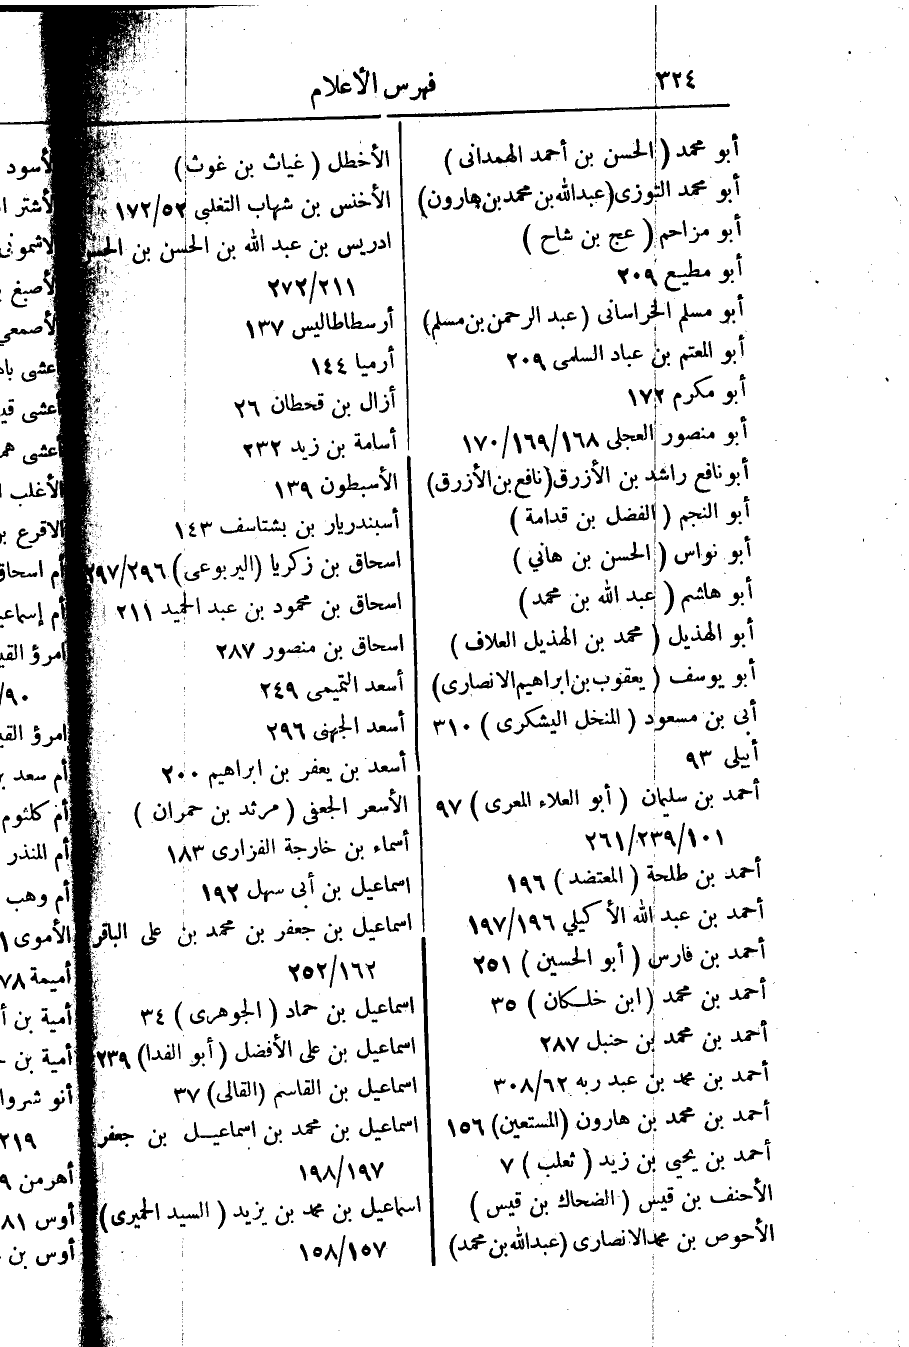 ٣٢٤
فهرس الأعلام
أبو محمد ( الحسن بن أحمد الهمدانى )
أبو محمد التوزى (عبدالله بن محمد بن هارون)
أبو مزاحم ( عج بن شاح )
أبو مطيع ٢٠٩
أبو مسلم الخراسانى ( عبد الرحمن بن مسلم)
أبو المعتم بن عباد السلمى ٢٠٩
أبو مكرم ١٧٢
أبو منصور العجلى ١٦٨/١٦٩/١٧٠
أبو نافع راشد بن الأزرق (نافع بن الأزرق)
أبو النجم ( الفضل بن قدامة )
أبو نواس ( الحسن بن هاني )
أبو هاشم ( عبد الله بن محمد )
أبو الهذيل ( محمد بن الهذيل العلاف )
أبو يوسف ( يعقوب بن ابراهيم الانصارى)
أبى بن مسعود ( المنخل اليشكرى ) ٣١٠
أبيلى ٩٣
أحمد بن سليمان ( أبو العلاء المعرى ) ٩٧
١٠١/٢٣٩/٢٦١
أحمد بن طلحة ( المعتضد ) ١٩٦
أحمد بن عبد الله الأكيلي ١٩٦/١٩٧
أحمد بن فارس ( أبو الحسين ) ٢٥١
أحمد بن محمد ( ابن خلكان ) ٣٥
أحمد بن محمد بن حنبل ٢٨٧
أحمد بن محمد بن عبد ربه ٦٢/٣٠٨
أحمد بن محمد بن هارون (المستعين) ١٥٦
أحمد بن يحيى بن زيد ( ثعلب ) ٧
الأحنف بن قيس ( الضحاك بن قيس )
الأحوص بن محمد الانصارى (عبدالله بن محمد)
الأخطل ( غياث بن غوث )
الأخنس بن شهاب التغلبى ٥٢/١٧٢
ادريس بن عبد الله بن الحسن بن الحسن
٢١١/٢٧٢
أرسطاطاليس ١٣٧
أرميا ١٤٤
أزال بن قحطان ٢٦
أسامة بن زيد ٢٣٢
الأسبطون ١٣٩
أسبندريار بن بشتاسف ١٤٣
اسحاق بن زكريا (اليربوعى) ٢٩٦/٢٩٧
اسحاق بن محمود بن عبد الحميد ٢١١
اسحاق بن منصور ٢٨٧
أسعد التميمى ٢٤٩
أسعد الجهنى ٢٩٦
أسعد بن يعفر بن ابراهيم ٢٠٠
الأسعر الجعفى ( مرثد بن حمران )
أسماء بن خارجة الفزارى ١٨٣
اسماعيل بن أبى سهل ١٩٢
اسماعيل بن جعفر بن محمد بن على الباقر
١٦٢/٢٥٢
اسماعيل بن حماد ( الجوهرى ) ٣٤
اسماعيل بن على الأفضل ( أبو الفدا) ٢٣٩
اسماعيل بن القاسم (القالى) ٣٧
اسماعيل بن محمد بن اسماعيل بن جعفر
١٩٧/١٩٨
اسماعيل بن محمد بن يزيد ( السيد الحميرى)
١٥٧/١٥٨
الأسود
الأشتر
الاشمونى
الأصبغ
الأصمعي
أعشى
أعشى
أعشى
الأغلب
الاقرع
أم اسحاق
أم
امرؤ
٩٠/
امرؤ
أم سعد
أم كلثوم
أم المنذر
أم وهب
الأموى
أميمة ٧٨
أمية بن
أمية بن
أنو شروا
٢١٩
أهرمن ٩
أوس ٨١
أوس بن